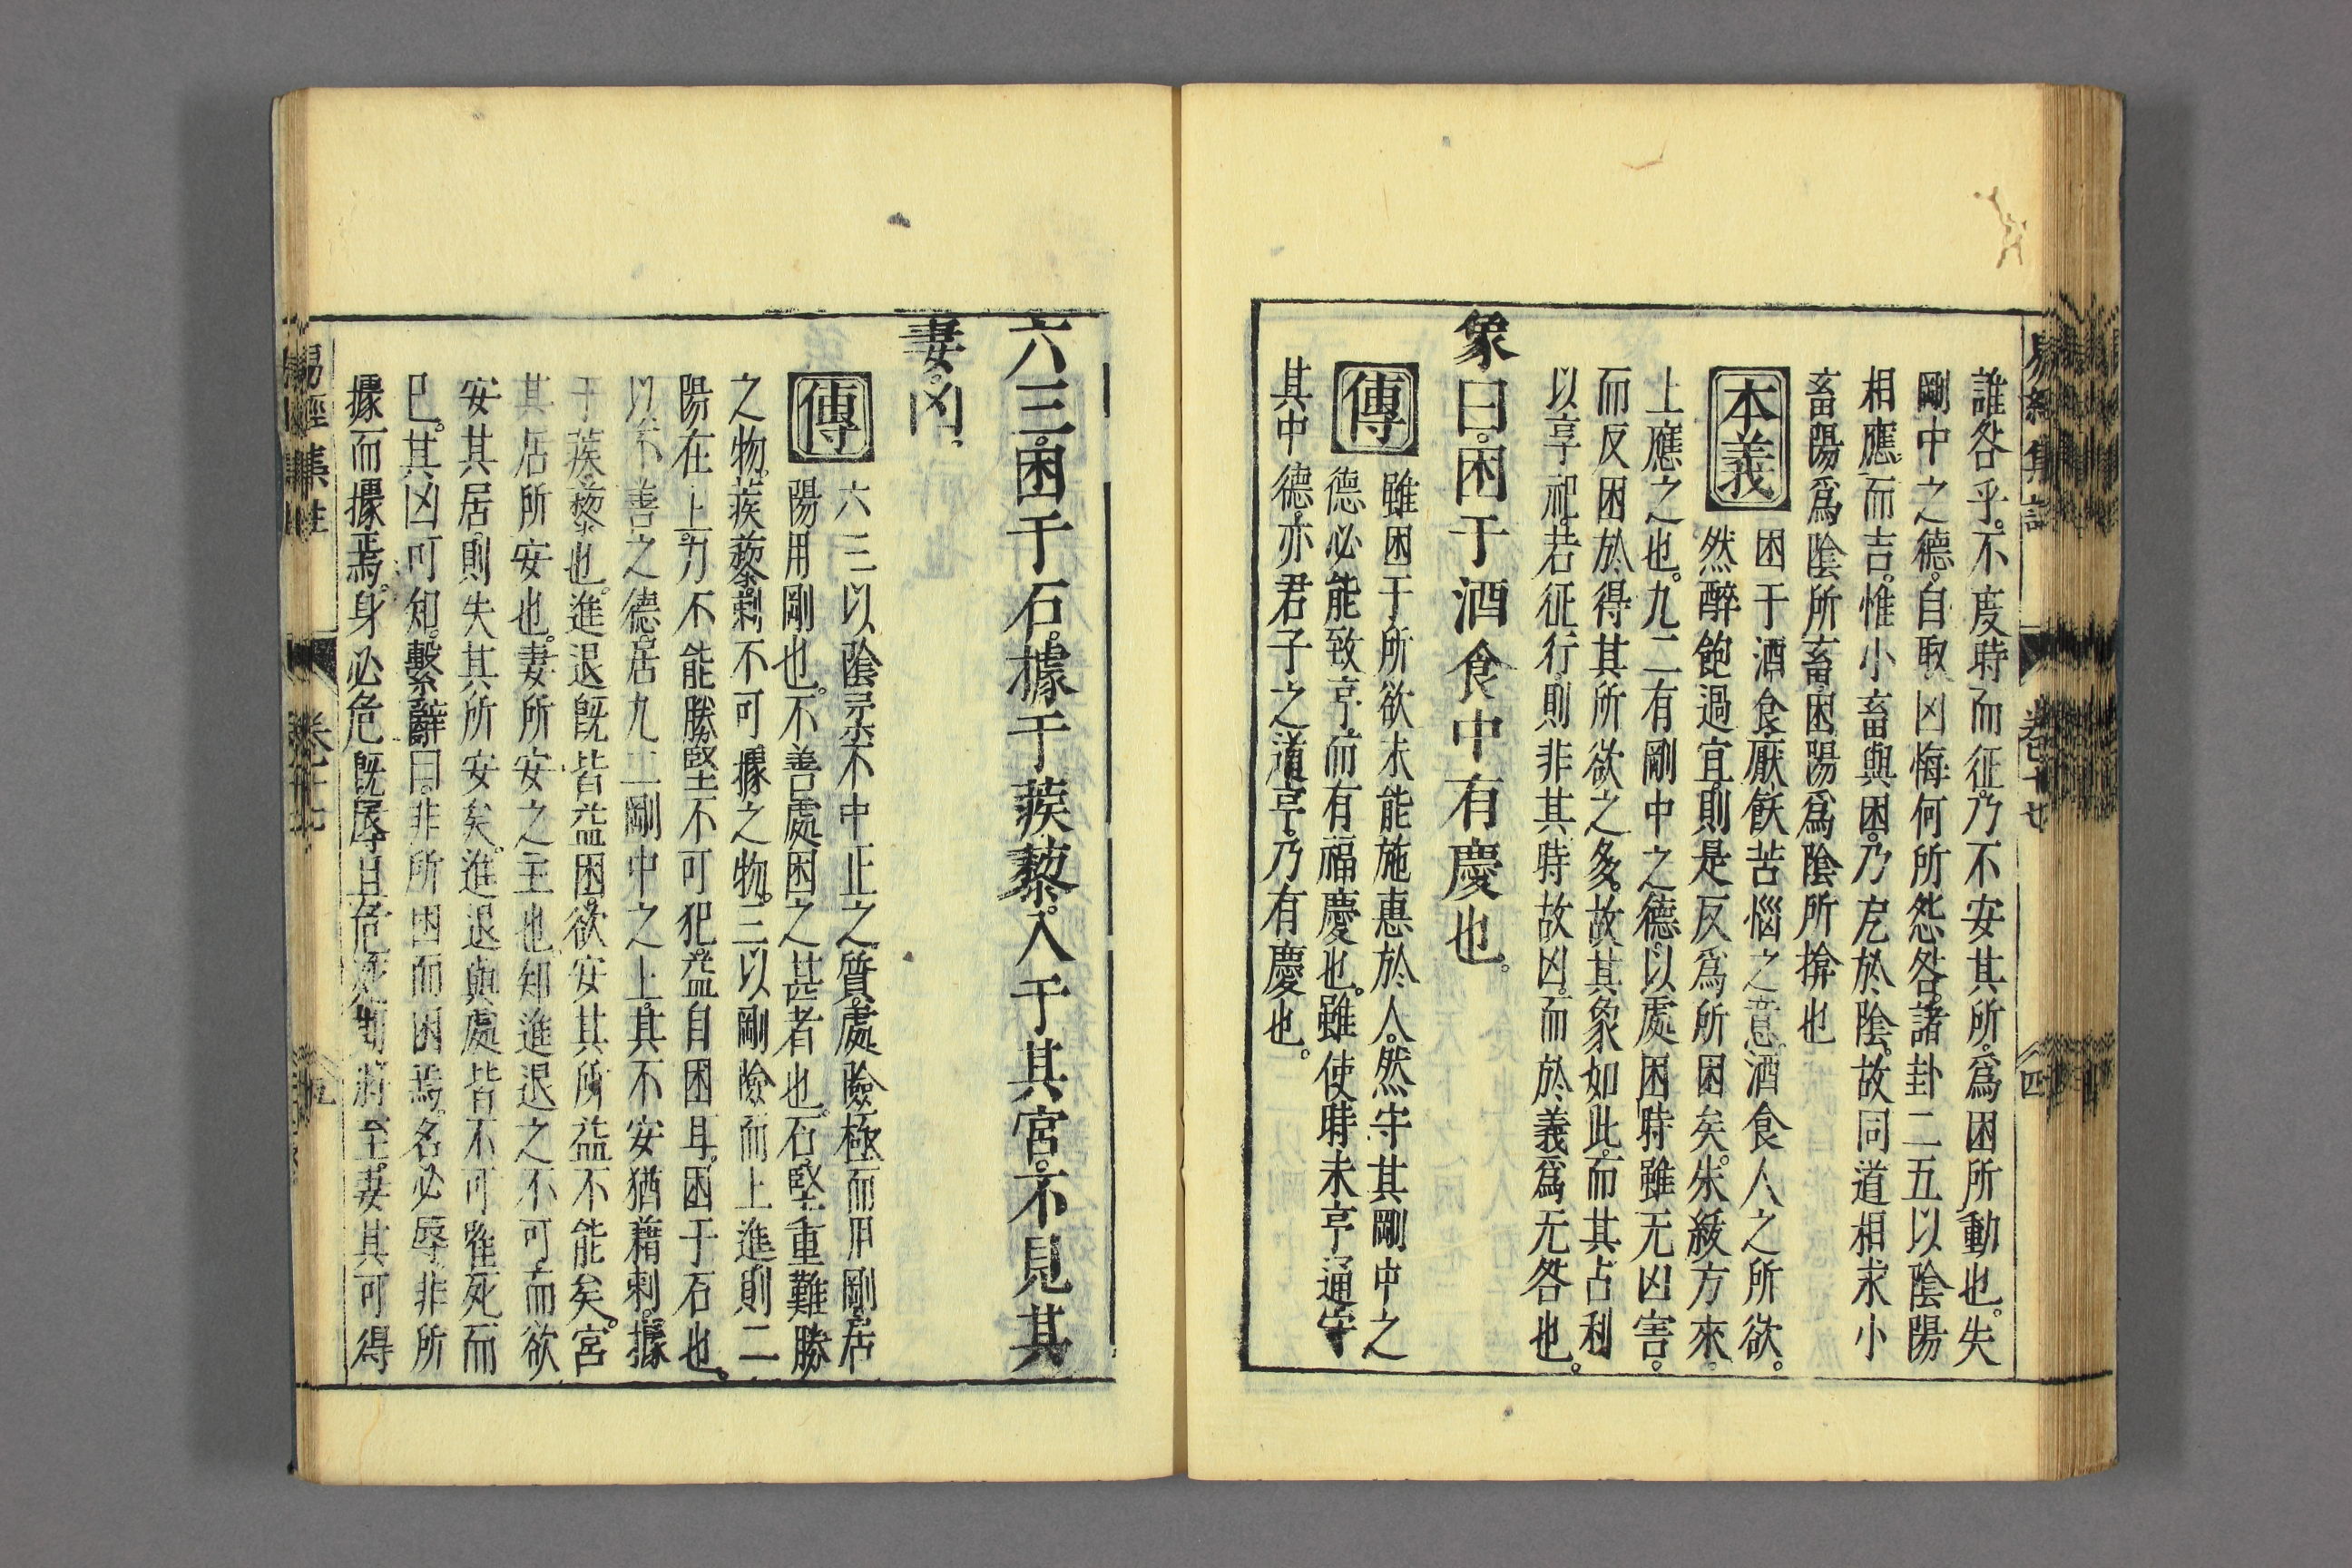 誰咎乎。不度時而征。乃不安其所。爲困所動也。失
剛中之德。自取凶悔何所怨咎。諸卦二五以陰陽
相應而吉。惟小畜與困。乃戹於陰。故同道相求小
畜陽爲陰所畜。困陽爲陰所揜也
本義
困于酒食厭飫苦惱之意酒食人之所欲。
然醉飽過宜。則是反爲所困矣。朱紱方來。
上應之也。九二有剛中之德。以處困時雖无凶害。
而反困於得其所欲之多。故其象如此。而其占利
以享祀。若征行。則非其時故凶。而於義爲无咎也。
象曰。困于酒食中有慶也。
傳
雖困于所欲未能施惠於人。然守其剛中之
德必能致亨。而有福慶也。雖使時未亨通。守
其中德。亦君子之道亨。乃有慶也。
六三。困于石。據于蒺藜。入于其宮。不見其
妻。凶。
傳
六三以陰柔不中正之質。處險極而用剛。居
陽用剛也。不善處困之甚者也。石。堅重難勝
之物。蒺藜。刺不可據之物。三以剛險而上進。則二
陽在上。力不能勝。堅不可犯。益自困耳。困于石也。
以不善之德。居九二剛中之上。其不安猶藉刺。據
于蒺藜也。進退旣皆益困。欲安其所。益不能矣。宮
其居所安也。妻所安之主也。知進退之不可。而欲
安其居。則失其所安矣。進退與處皆不可。唯死而
已。其凶可知。繫辭曰。非所困而困焉。名必辱。非所
據而據焉。身必危。旣辱且危。死期將至。妻其可得
易經集註 卷十七